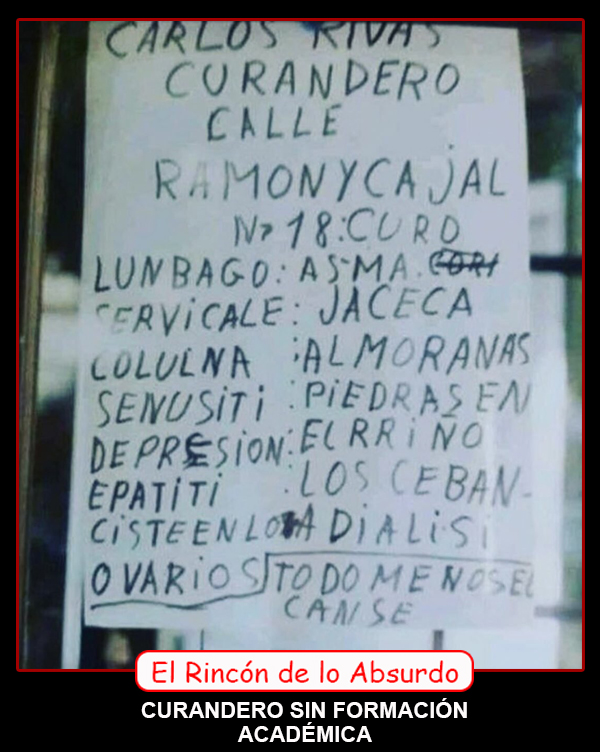 CARLOS RIVAS
CURANDERO
CALLE
RAMONYCAJAL
Nº18:CURO
LUNBAGO: ASMA.
SERVICALE: JACECA
COLULNA :ALMORANAS
SENUSITI :PIEDRAS EN
DEPRESION:EL RRIÑO
EPATITI :LOS CEBAN-
CISTEENLO A DIALISI
OVARIOS TODO MENOS EL
CANSE
El Rincón de lo Absurdo
CURANDERO SIN FORMACIÓN
ACADÉMICA